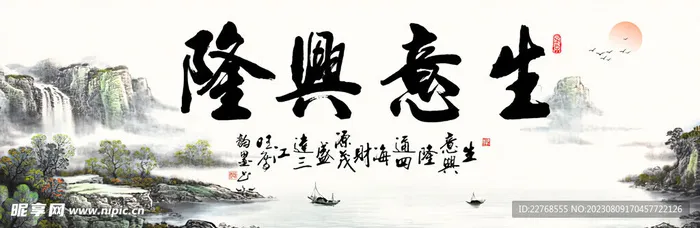 生意興隆
生意興隆通四海财源茂盛達三江
昵享网 www.nipic.cn
ID:22768555 NO:20230809170457722126